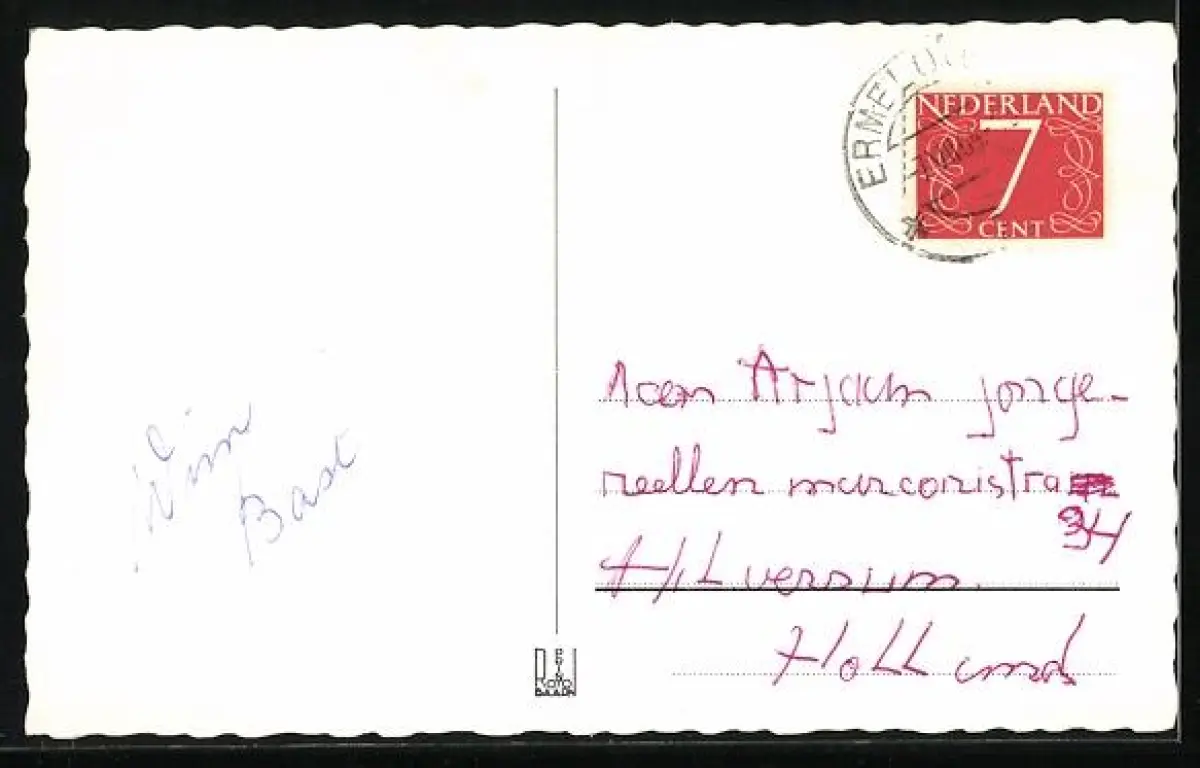 ERMELO
NEDERLAND
7
CENT
Wim
Bast
Aan Arjan jonge-
neellen marconistra
34
Hilversum.
Holland
FOTO
BAARN